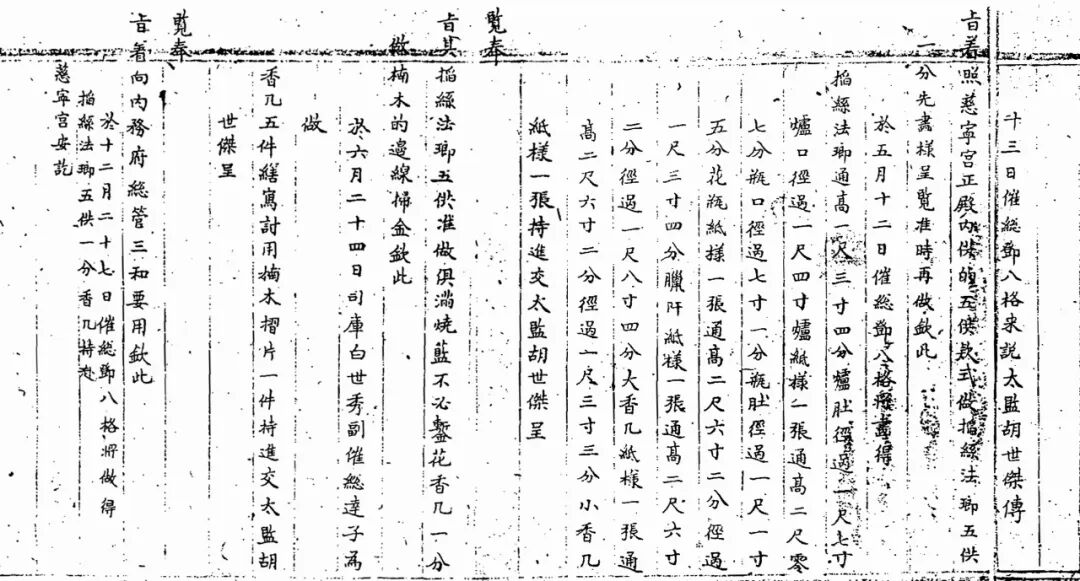 十三日催総鄧八格來説太監胡世傑傳
旨着照慈寧宫正殿内供的五供欵式做掐絲法瑯五供
一分先畫樣呈覧准時再做欽此
於五月十二日催総鄧八格將畫得
掐絲法瑯通高一尺三寸四分爐肚徑過一尺七寸
爐口徑過一尺四寸爐紙樣一張通高二尺零
七分瓶口徑過七寸一分瓶肚徑過一尺一寸
五分花瓶紙樣一張通高二尺六寸二分徑過
一尺三寸四分臘阡紙樣一張通高二尺六寸
二分徑過一尺八寸四分大香几紙樣一張通
高二尺六寸二分徑過一尺三寸三分小香几
紙樣一張持進交太監胡世傑呈
覧奉
旨其掐絲法瑯五供准做俱滿燒藍不必鏨花香几一分
做楠木的邊線掃金欽此
於六月二十四日司庫白世秀副催総達子為
做
香几五件繕寫討用楠木摺片一件持進交太監胡
世傑呈
覧奉
旨着向内務府総管三和要用欽此
於十二月二十七日催総鄧八格將做得
掐絲法瑯五供一分香几持進
慈寧宫安訖